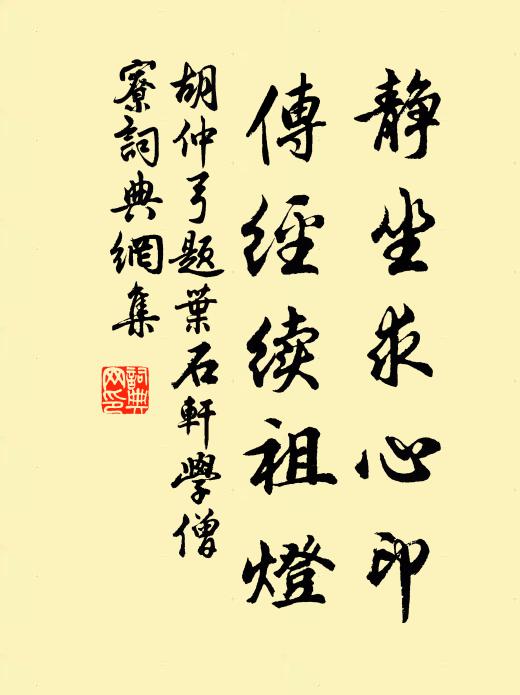 静坐求心印
傳經续祖燈
胡仲弓题葉石軒學僧
寮詞典網集
詞典
网印